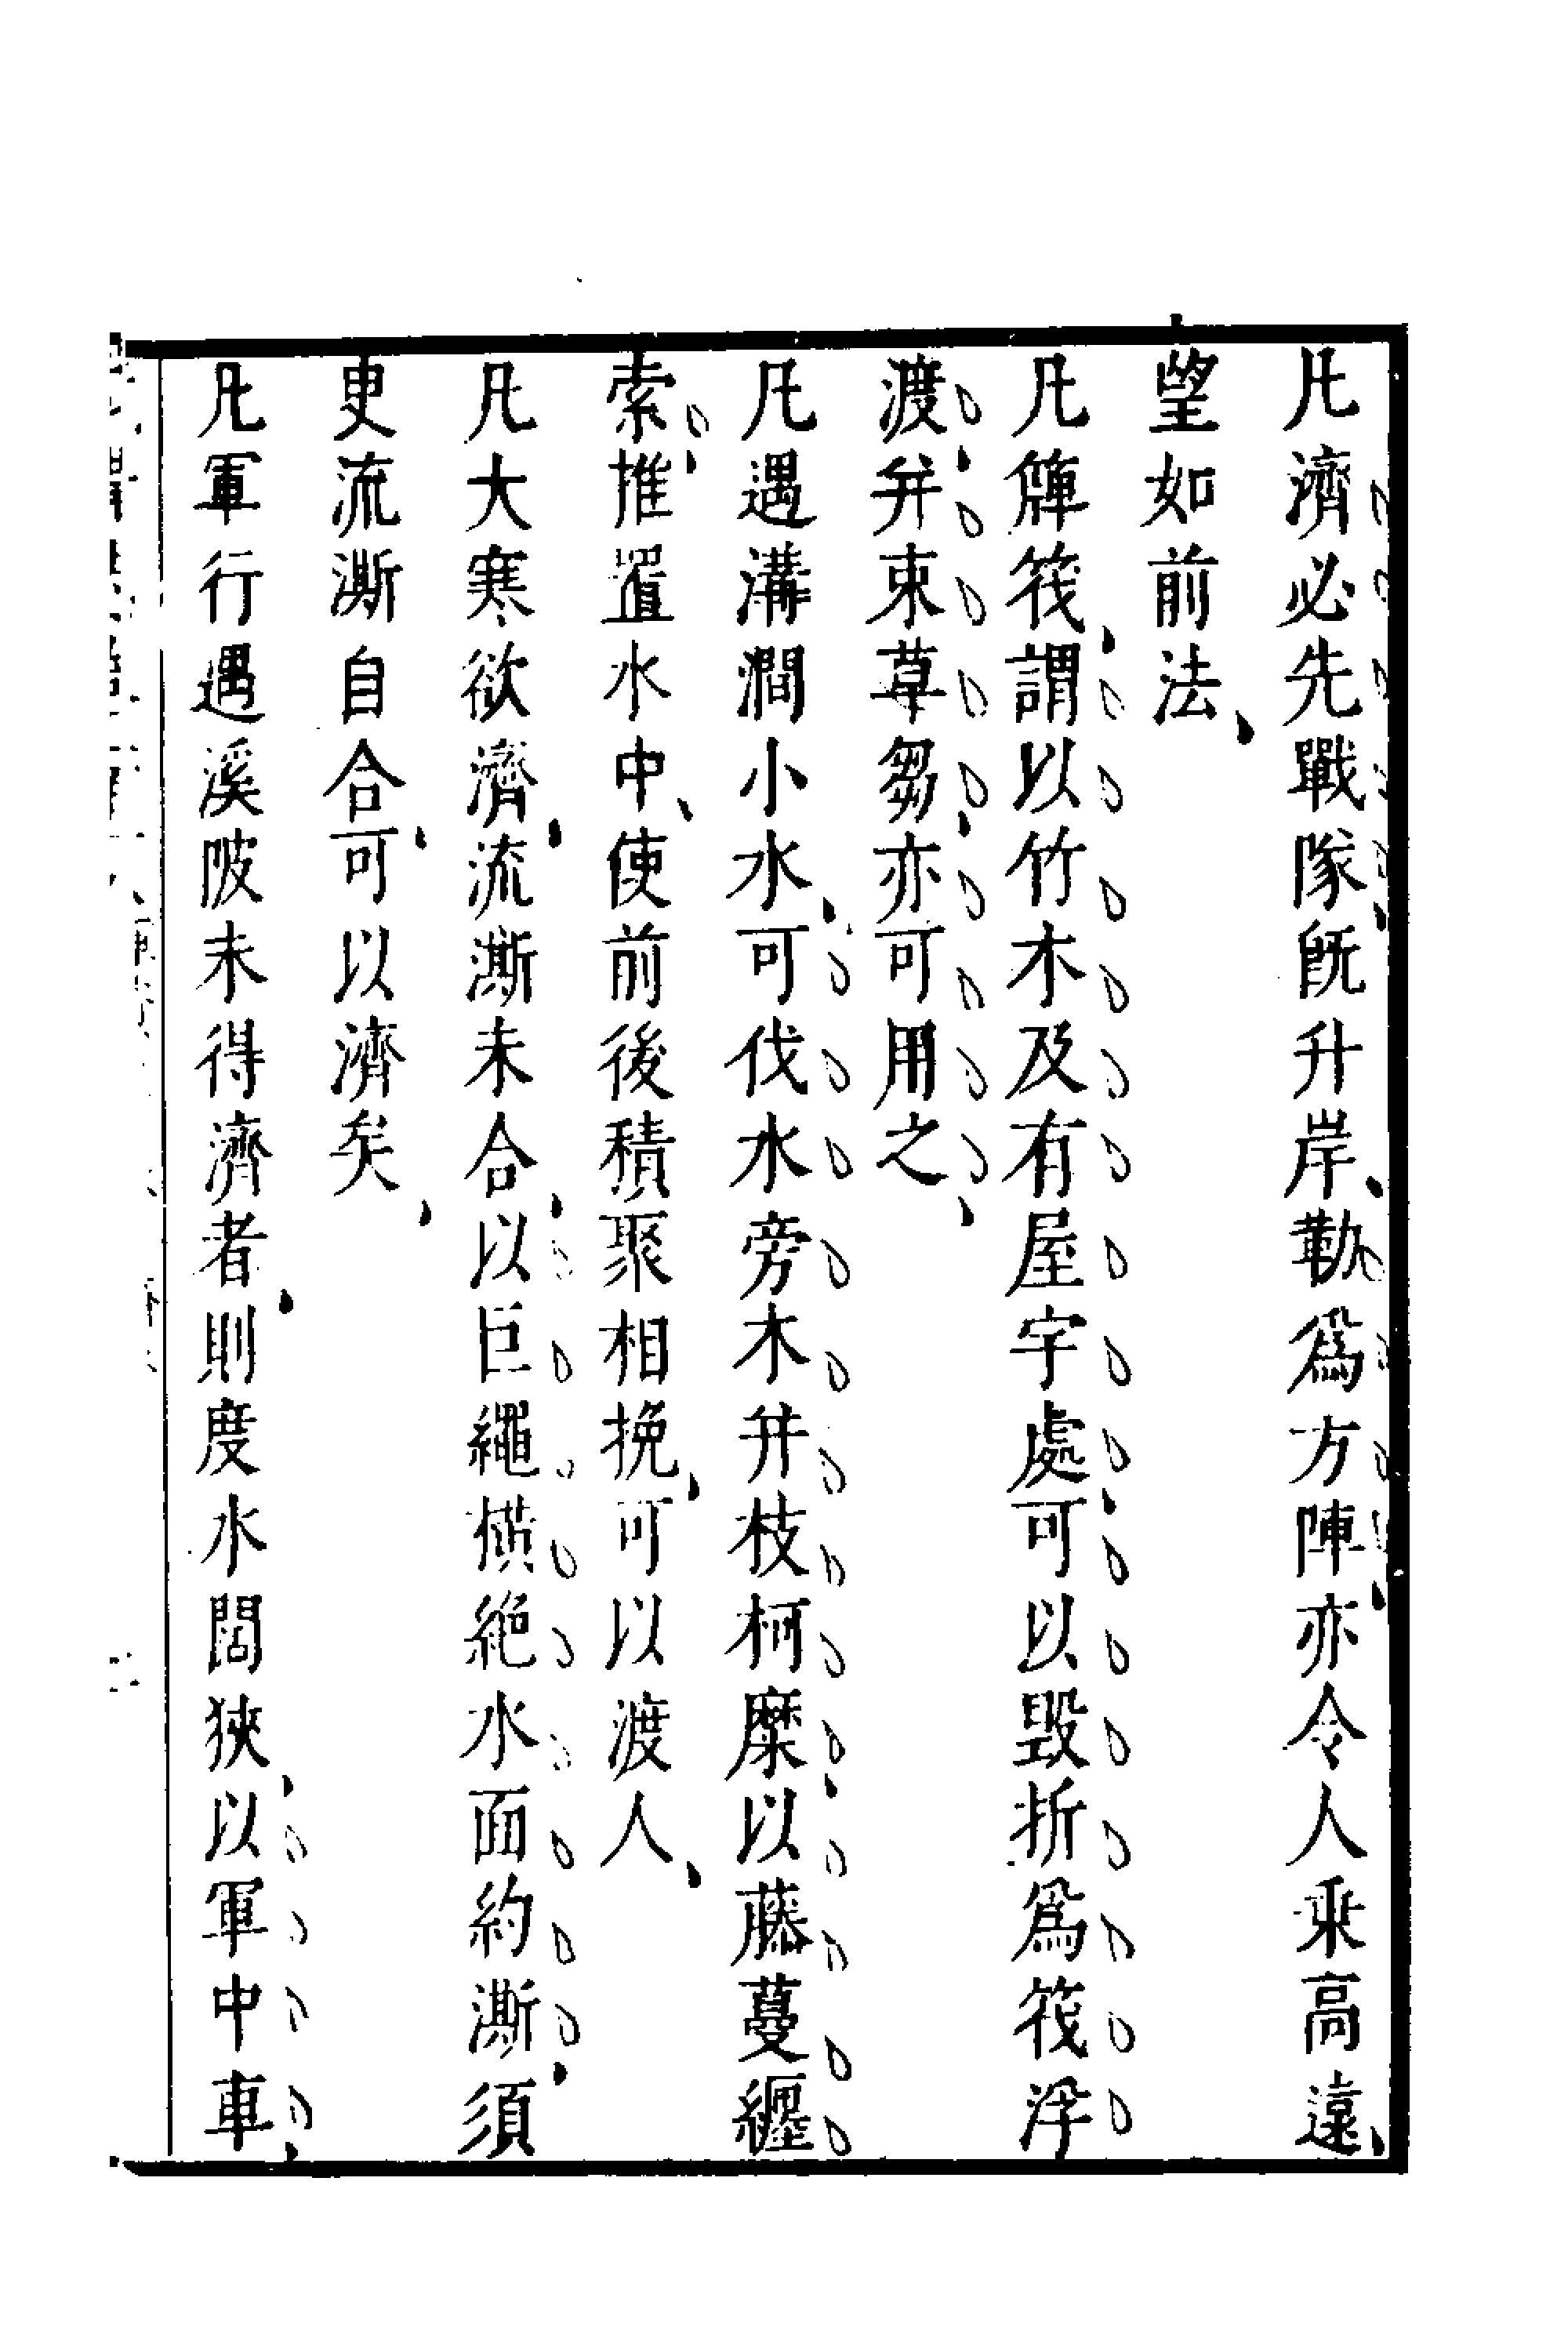 凡濟必先戰隊旣升岸勒爲方陣亦令人乘高遠
望如前法
凡簰筏謂以竹木及有屋宇處可以毀折爲筏浮
渡并束草芻亦可用之
凡遇溝澗小水可伐水旁木并枝柯縻以藤蔓纒
索推置水中使前後積聚相挽可以渡人
凡大寒欲濟流澌未合以巨繩横絶水面約澌須
更流澌自合可以濟矣
凡軍行遇溪陂未得濟者則度水闊狹以軍中車